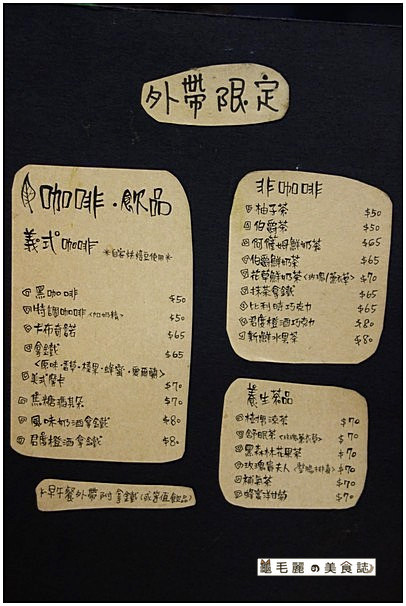 外帶限定
咖啡·飲品
義式咖啡
＊自家烘焙豆使用＊
黑咖啡 $50
特調咖啡<加奶精> $50
卡布奇諾 $65
拿鐵 $65
<原味·香草·榛果·蜂蜜·黑爾蘭>
義式摩卡 $70
焦糖瑪其朵 $70
風味奶酒拿鐵 $80
君度橙酒拿鐵 $80
非咖啡
柚子茶 $50
伯爵茶 $50
阿薩姆鮮奶茶 $65
伯爵鮮奶茶 $65
花草鮮奶茶<玫瑰/薰衣草> $70
抹茶拿鐵 $65
比利時巧克力 $65
君度橙酒巧克力 $80
新鮮水果茶 $80
養生茶品
桂圓棗茶 $70
舒眠茶 $70
黑森林花果茶 $70
玫瑰貴夫人 $70
補氣茶 $70
蜂蜜洋甘菊 $70
早午餐外帶附拿鐵(或等值飲品)
毛麗の美食誌